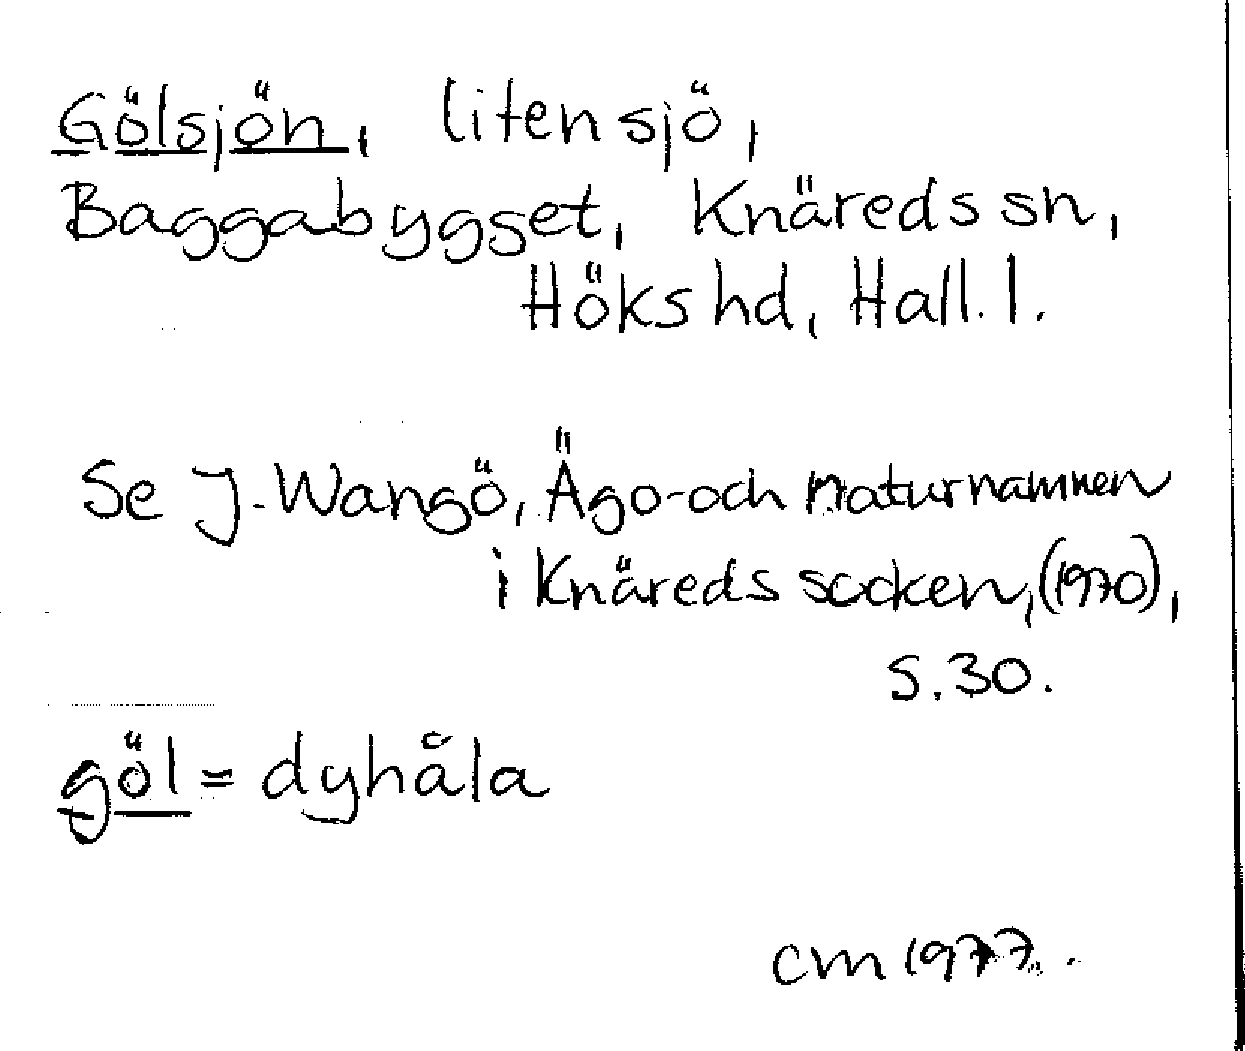 Gölsjön, liten sjö,
Baggabygset, Knäreds sn,
Höks hd, Hall. l.
Se J. Wangö, Ägo- och naturnamnen
i Knäreds socken, (1970),
s. 30.
göl = dyhåla
CM 1977.